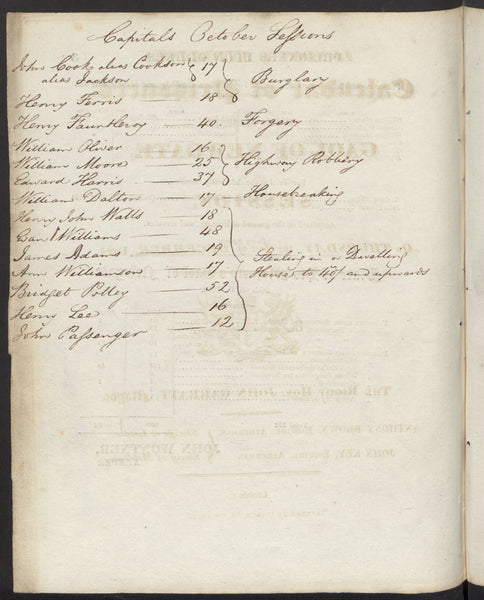 Capitals October Sessions
John Cook alias Cookson 17
alias Jackson
Burglary
Henry Ferris — 18
Henry Fauntleroy — 40. Forgery
William Oliver — 16
William Moore — 25 Highway Robbery
Edward Harris — 37
William Dalton — 17 Housebreaking
Henry John Watts — 18
Williams — 48
James Adams — 19 Stealing in a Dwelling
Ann Williamson — 17 House to 40/ and upwards
Bridget Polley — 52
Henry Lee — 16
John Passenger — 12